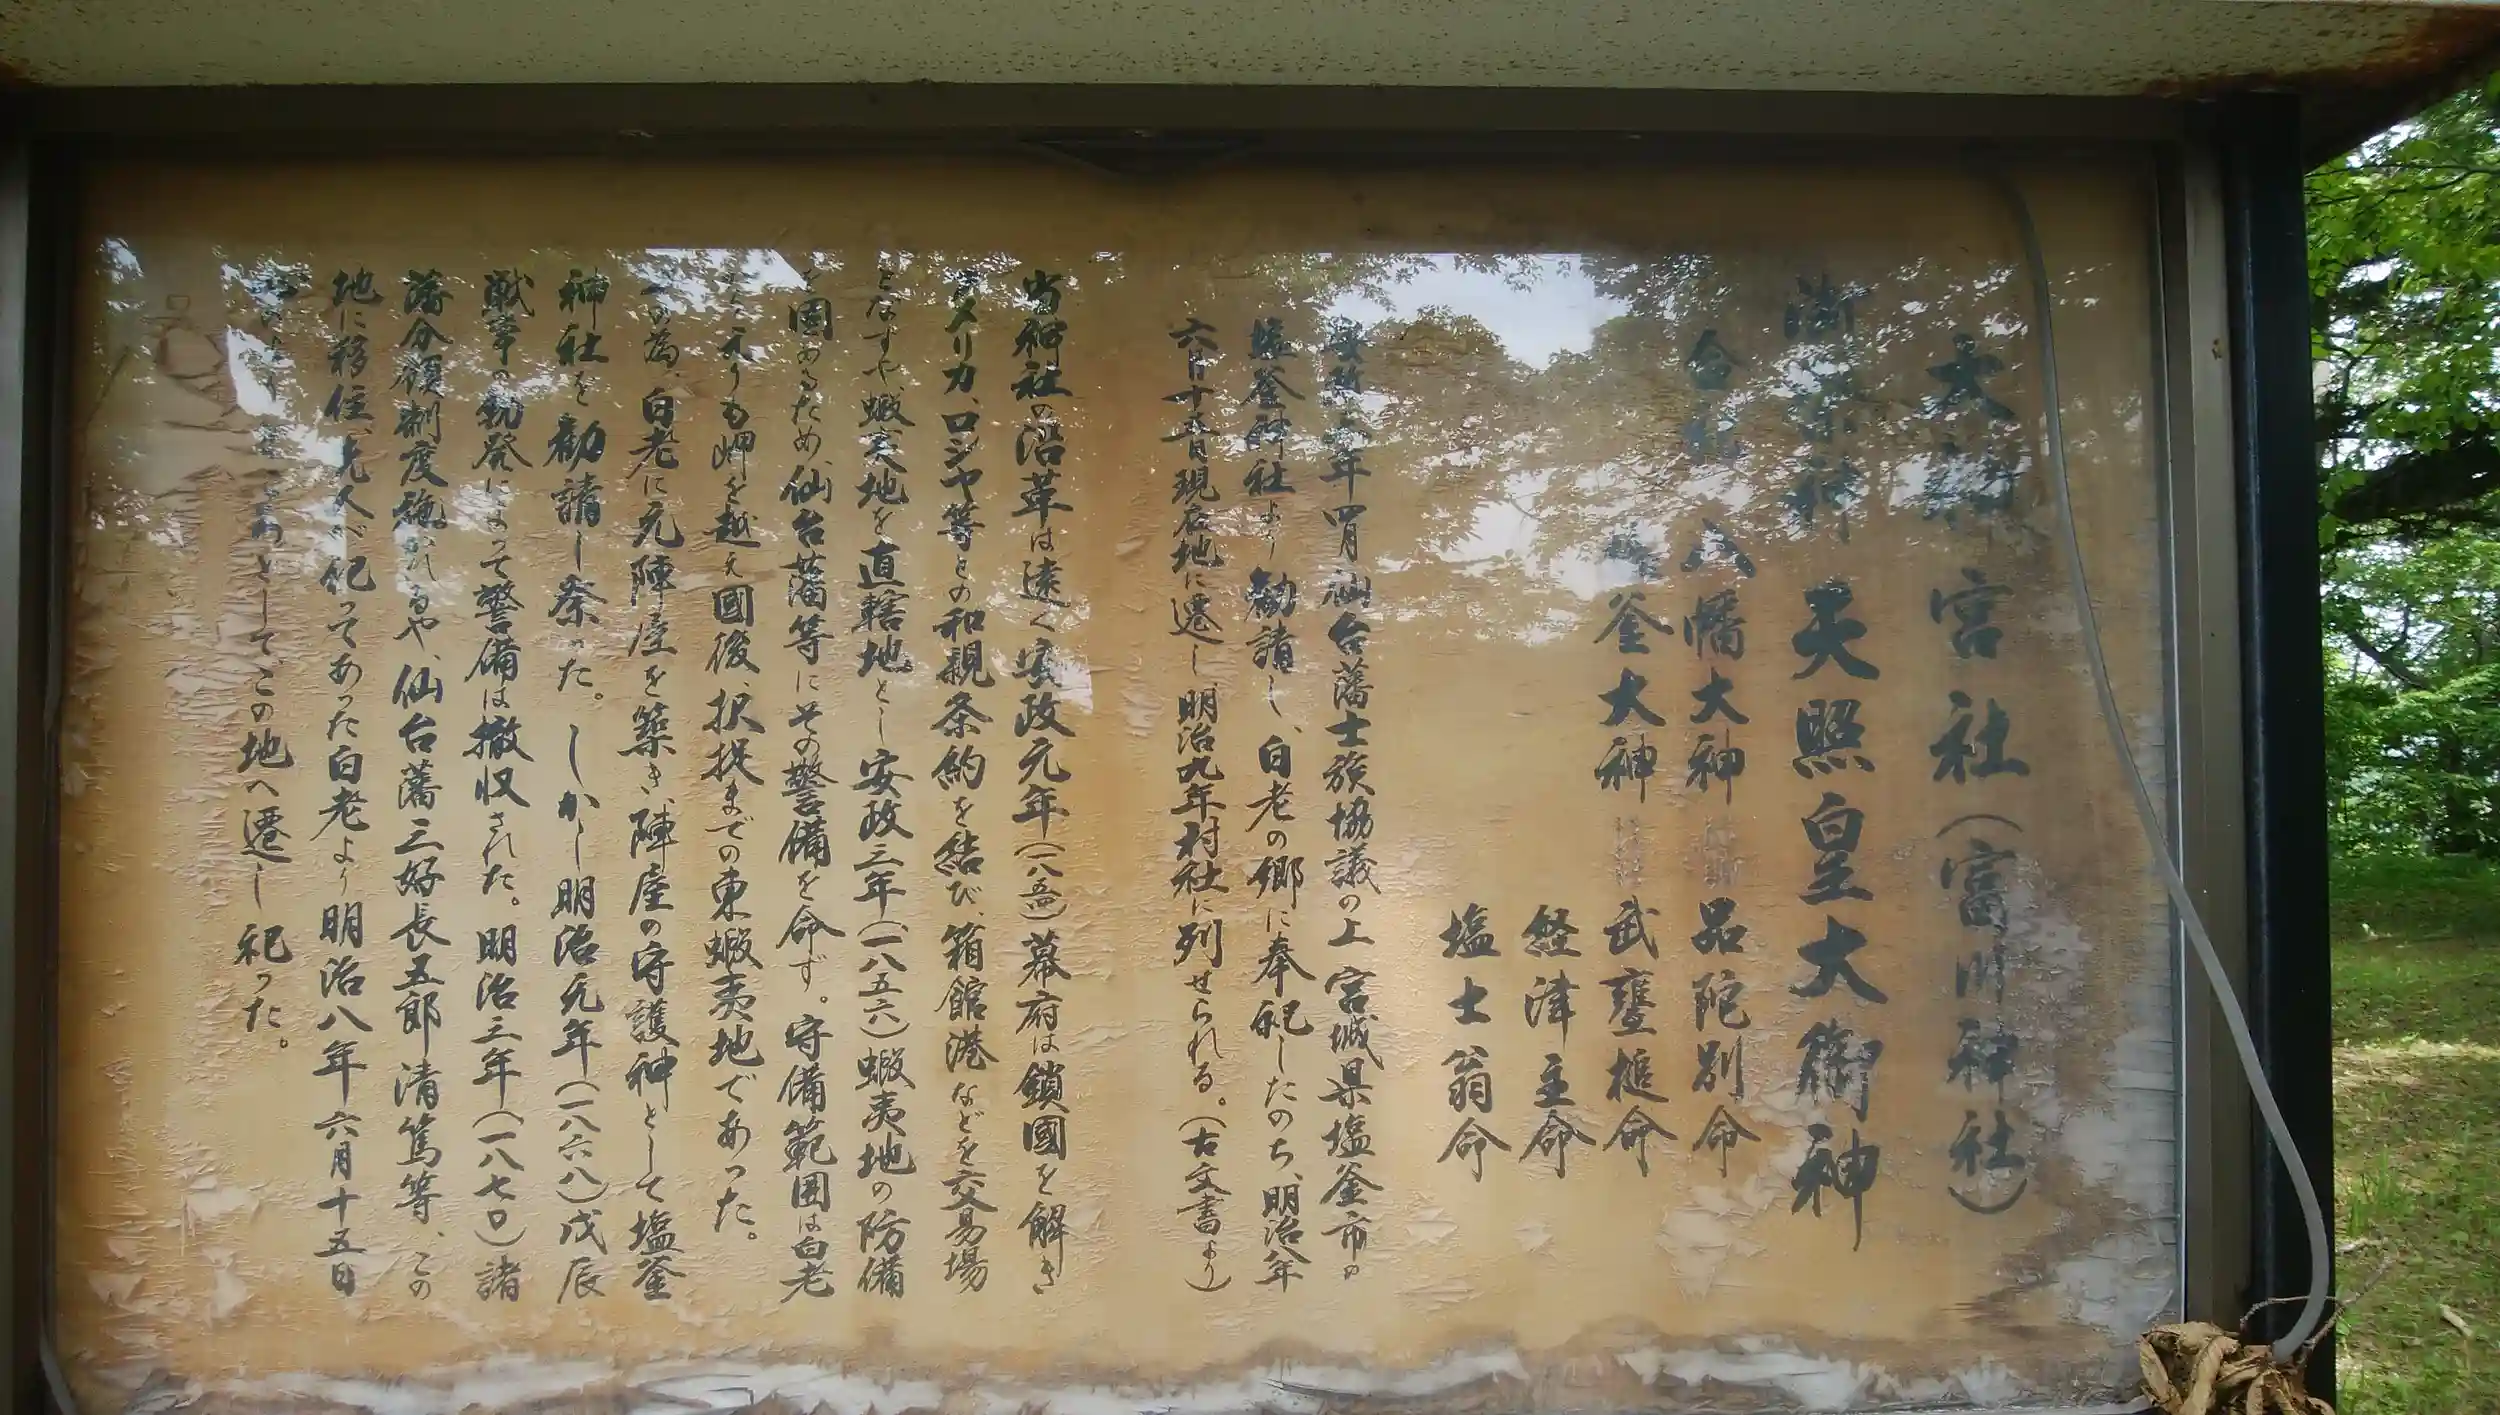 太神宮社(富川神社)
御祭神 天照皇大御神
合祀 八幡大神 品陀別命
釜大神 武甕槌命
経津主命
塩土翁命
年四月仙台藩士族協議の上宮城県塩釜市の
塩釜神社より勧請し、白老の郷に奉祀したのち、明治八年
六月十五日現在地に遷し、明治九年村社に列せられる。(古文書より)
当神社の沿革は遠く安政元年(一八五四)幕府は鎖國を解き
アメリカ、ロシヤ等との和親条約を結び、箱館港などを交易場
となすや、蝦夷地を直轄地とし安政三年(一八五六)蝦夷地の防備
を固めるため、仙台藩等にその警備を命ず。守備範囲は白老
からえりも岬を越え國後、択捉までの東蝦夷地であった。
この為、白老に元陣屋を築き、陣屋の守護神として塩釜
神社を勧請し祭った。しかし明治元年(一八六八)戊辰
戦争の勃発によって警備は撤収された。明治三年(一八七〇)諸
藩分領制度施かれるや、仙台藩三好長五郎清篤等、この
地に移住、先人が祀ってあった白老より明治八年六月十五日
として、この地へ遷し祀った。